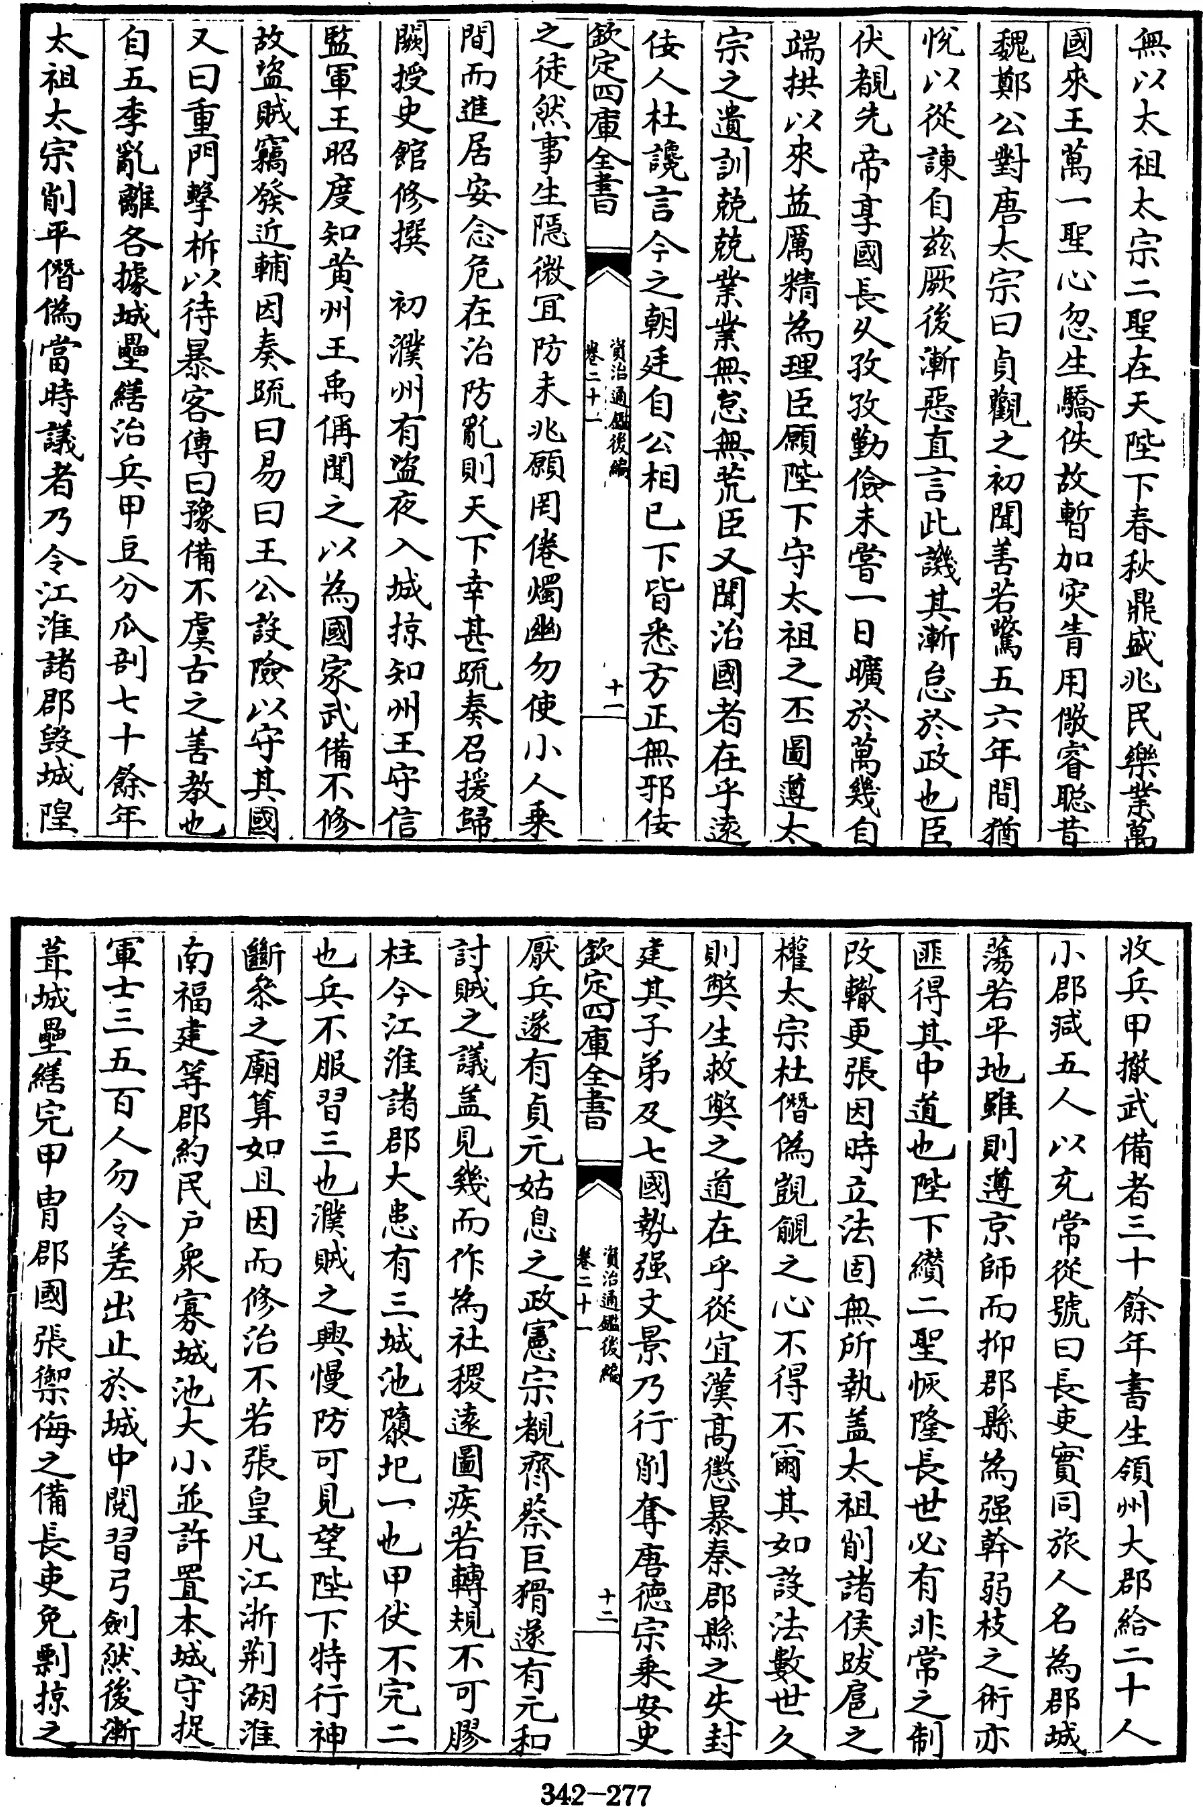 無以太祖太宗二聖在天陛下春秋鼎盛兆民樂業萬
國來王萬一聖心忽生驕佚故暫加災眚用儆睿聰昔
魏鄭公對唐太宗曰貞觀之初聞善若驚五六年間猶
悅以從諫自茲厥後漸惡直言此譏其漸怠於政也臣
伏覩先帝享國長久孜孜勤儉未嘗一日曠於萬幾自
端拱以來益厲精為理臣願陛下守太祖之丕圖遵太
宗之遺訓兢兢業業無怠無荒臣又聞治國者在乎遠
佞人杜讒言今之朝廷自公相已下皆悉方正無邪佞
欽定四庫全書
資治通鑑後編
卷二十一
十一
之徒然事生隱微宜防未兆願罔倦燭幽勿使小人乗
間而進居安念危在治防亂則天下幸甚疏奏召援歸
闕授史館修撰 初濮州有盜夜入城掠知州王守信
監軍王昭度知黃州王禹偁聞之以為國家武備不修
故盜賊竊發近輔因奏疏曰易曰王公設險以守其國
又曰重門擊柝以待暴客傳曰豫備不虞古之善教也
自五季亂離各據城壘繕治兵甲豆分瓜剖七十餘年
太祖太宗削平僭偽當時議者乃令江淮諸郡毀城隍
收兵甲撤武備者三十餘年書生領州大郡給二十人
小郡減五人以充常從號曰長吏實同旅人名為郡城
蕩若平地雖則遵京師而抑郡縣為强幹弱枝之術亦
匪得其中道也陛下纘二聖恢隆長世必有非常之制
改轍更張因時立法固無所執盖太祖削諸侯跋扈之
權太宗杜僭偽覬覦之心不得不爾其如設法數世久
則弊生救弊之道在乎從宜漢高懲暴秦郡縣之失封
建其子弟及七國勢强文景乃行削奪唐德宗乗安史
欽定四庫全書
資治通鑑後編
卷二十一
十二
厭兵遂有貞元姑息之政憲宗覩齊蔡巨猾遂有元和
討賊之議盖見幾而作為社稷遠圖疾若轉規不可膠
柱今江淮諸郡大患有三城池隳圯一也甲仗不完二
也兵不服習三也濮賊之興慢防可見望陛下特行神
斷參之廟算如且因而修治不若張皇凡江浙荆湖淮
南福建等郡約民户衆寡城池大小並許置本城守捉
軍士三五百人勿令差出止於城中閱習弓劍然後漸
葺城壘繕完甲胄郡國張禦侮之備長吏免剽掠之
342-277